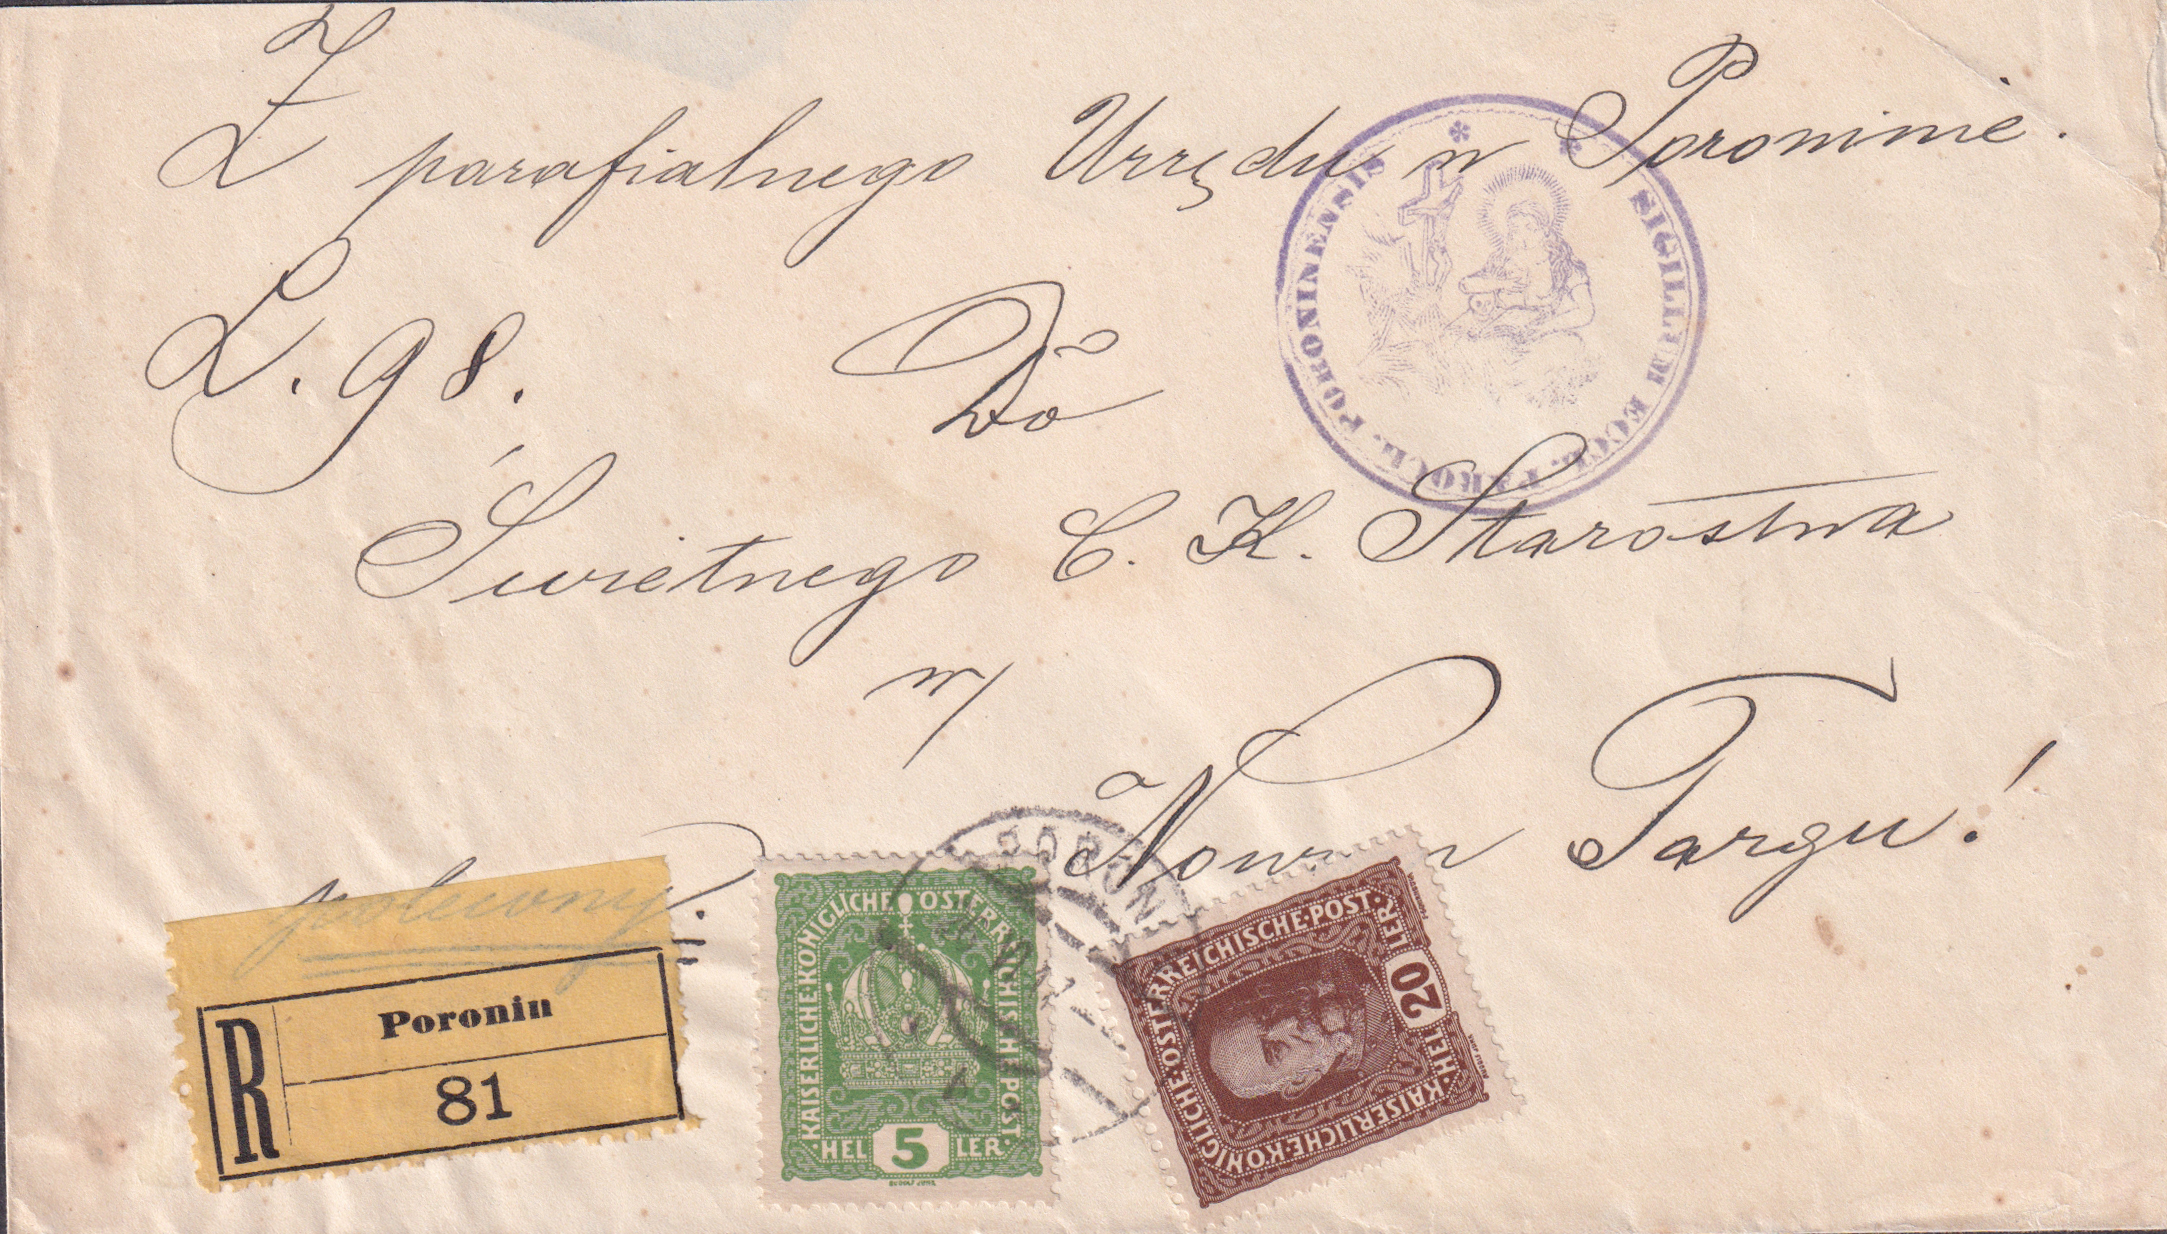 Z parafialnego Urzędu w Poroninie.
* SIGILLUM ECCL. PAROCL. PORONINENSIS *
L. 98.
Do
Świetnego C. K. Starostwa
w/
Nowym Targu!
polecony.
R
Poronin
81
KAISERLICHE·KÖNIGLICHE·ÖSTERREICHISCHE·POST·
HEL 5 LER
RUDOLF JUNK
KAISERLICHE·KÖNIGLICHE·ÖSTERREICHISCHE·POST·
HEL 20 LER
PORONIN